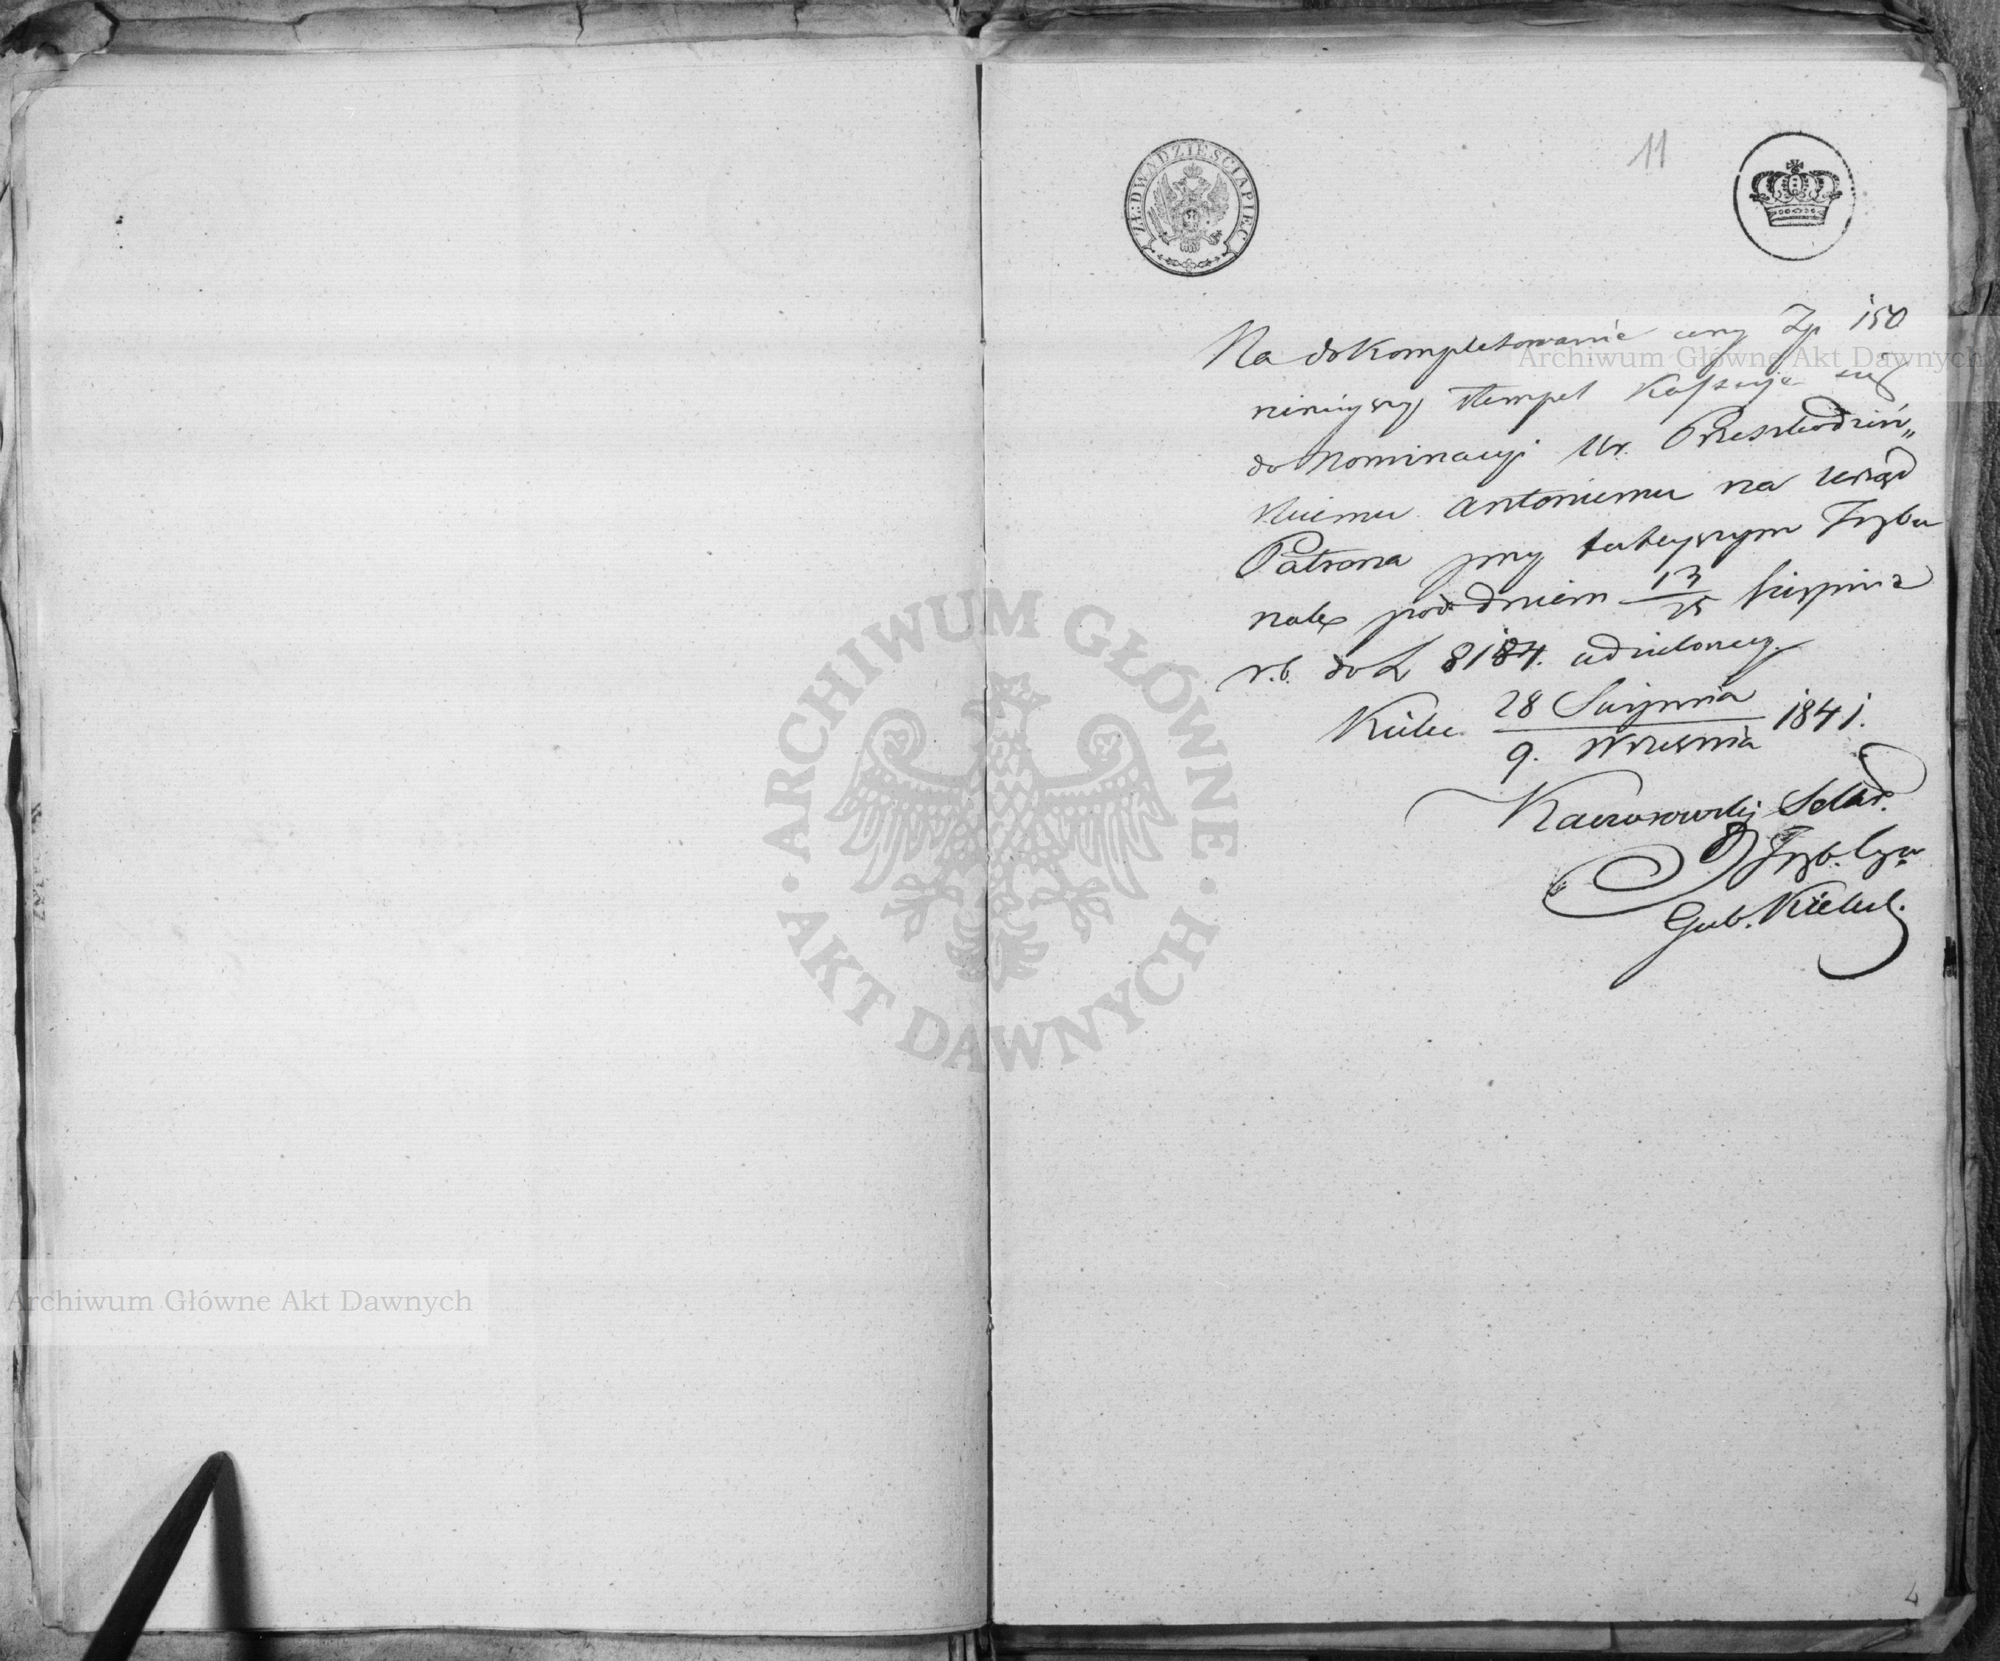 11
ZŁ: DWADZIEŚCIA PIĘĆ
Na dokompletowanie ceny Zp 150
niniejszy stempel Kassuje się
do Nominacyi Ur. Przeszkodziń„
skiemu Antoniemu na Urząd
Patrona przy tutejszym Trybu
nale pod dniem 13/25 Sierpnia
r.b. do L 8184. udzieloney.
Kielce 28 Sierpnia / 9. Września 1841.
Kaczorowski Sekr.
Tryb. Cyw
Gub. Kielec.
Archiwum Główne Akt Dawnych
ARCHIWUM GŁÓWNE
AKT DAWNYCH
Archiwum Główne Akt Dawnych